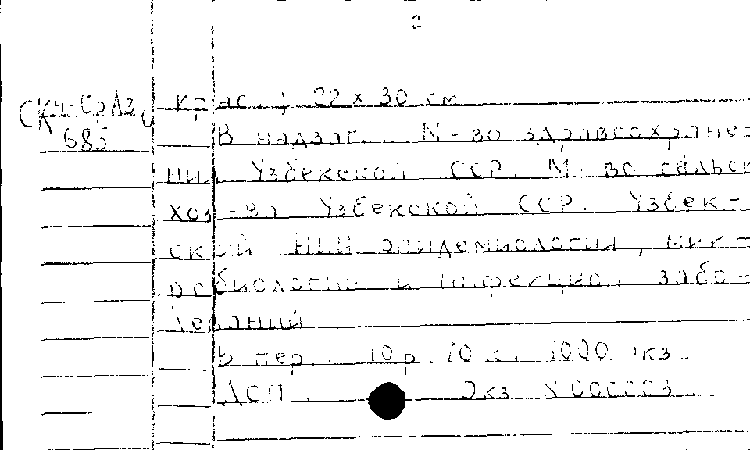 2
крас. ; 22 х 30 см
В надзаг.: М-во здравоохране-
ния Узбекской ССР. М-во сельск.
хоз-ва Узбекской ССР. Узбек-
ский НИИ эпидемиологии, мик-
робиологии и инфекцион. забо-
леваний
В пер.: 10 р. 70 к. 1000 экз.
ДСП. Экз. №000003
685